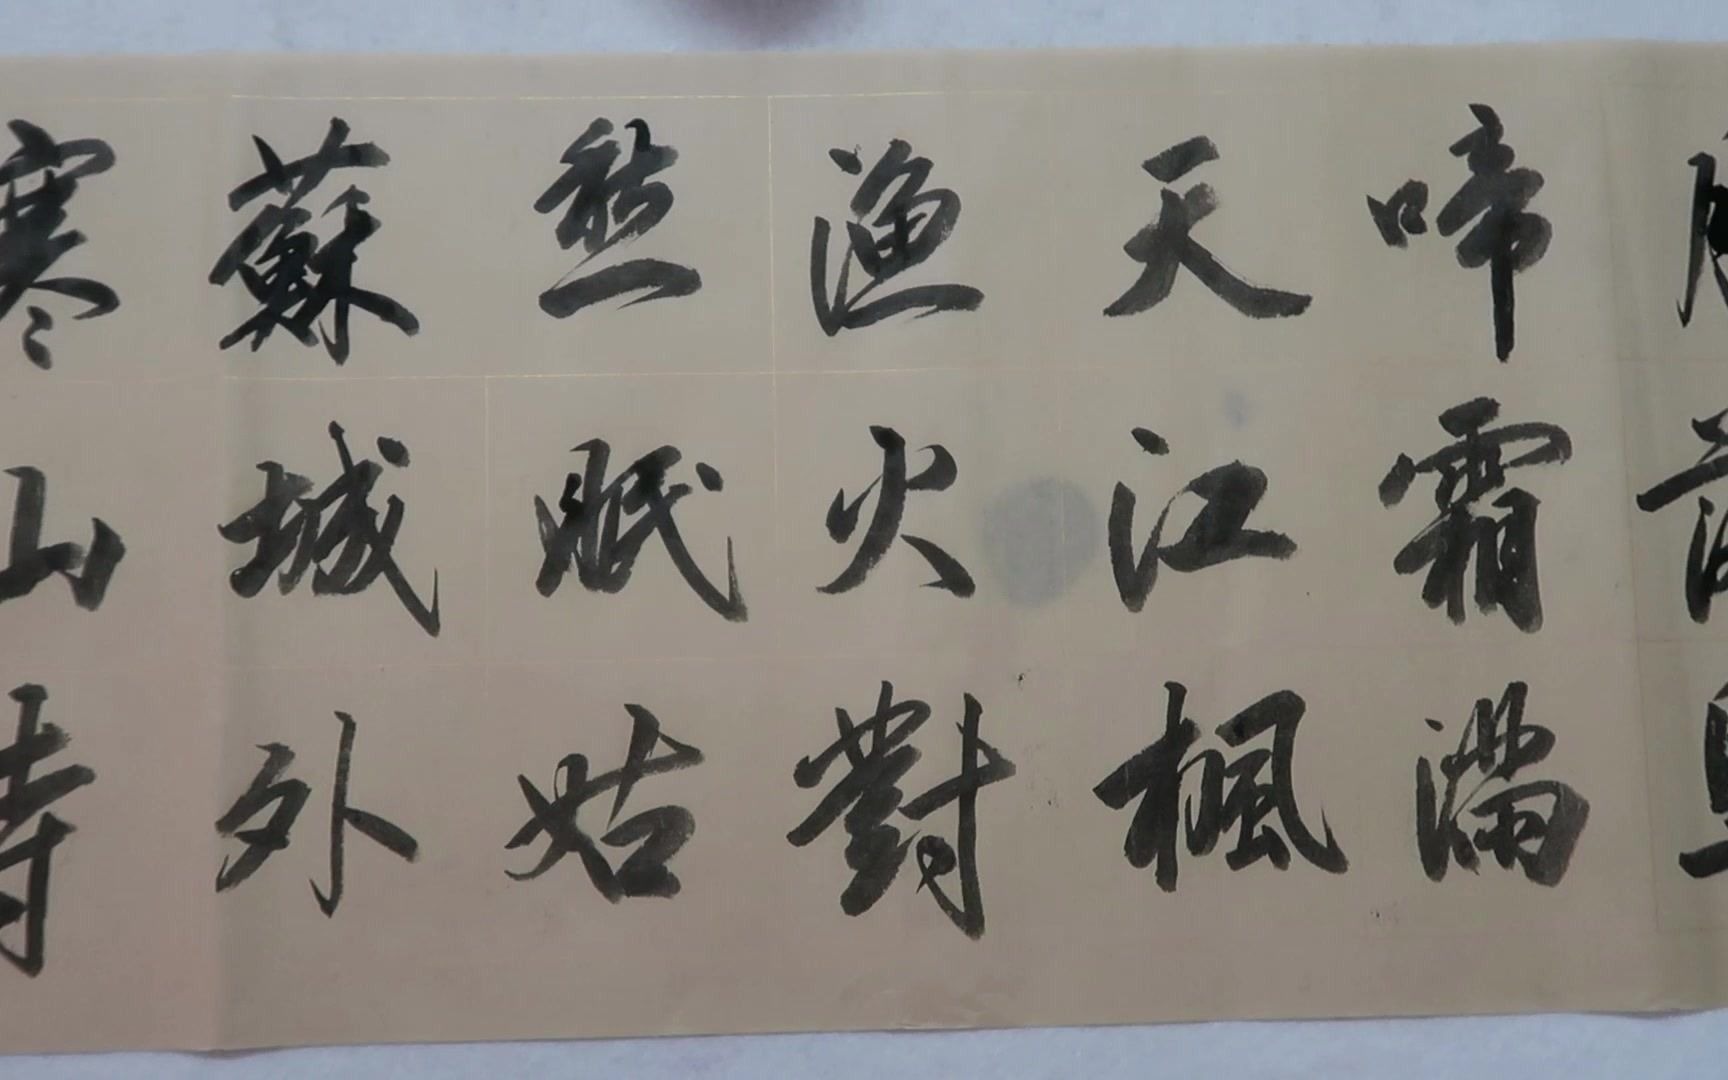 啼霜滿
天江楓
漁火對
愁眠姑
蘇城外
寒山寺